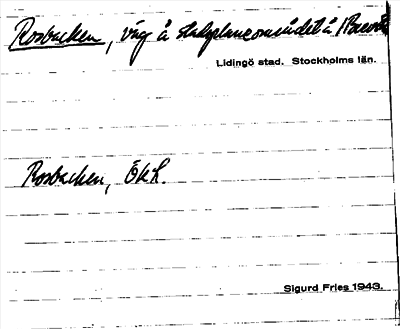 Rosbacken, väg å stadsplaneområdet å
Lidingö stad. Stockholms län.
Rosbacken, ÖkL.
Sigurd Fries 1943.